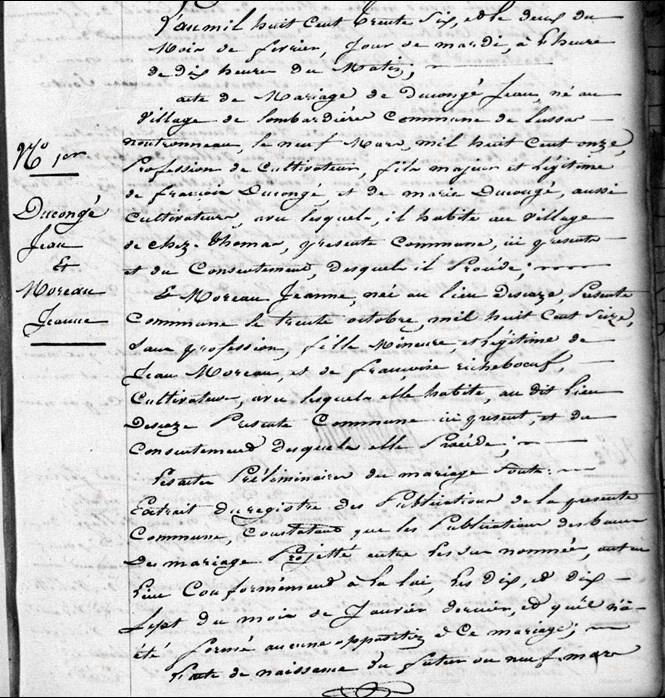 L'an mil huit Cent trente Six, et le deux du
Mois de fevrier, Jour de mardi, à l'heure
de dix heure du Matin;
acte de Mariage de Ducongé Jean, né au
Village de lombardière Commune de lussac
noutronneau, le neuf Mars, mil huit Cent onze,
Profession de Cultivateur, fils majeur et légitime
de francois Ducongé, et de marie Ducongé, aussi
Cultivateurs, avec lesquels, il habite au Village
de chez Thomas, presente Commune, ici present
et du Consentement, desquels il Procède,
N.o 1.er
Ducongé
Jean
&
Moreau
Jeanne
& Moreau Jeanne, née au lieu Presente
Commune le trente octobre, mil huit Cent Seize,
Sans profession, fille Mineure, et légitime de
Jean Moreau, et de françoise richeboeuf,
Cultivateurs, avec lesquels elle habite, au dit Lieu
Presente Commune ici present, et du
Consentement desquels elle Procède;
Les actes Préliminaires du mariage Sont:
Extrait du registre des Publications de la presente
Commune, Constatant que les Publications des bans
Des mariage Projetté entre les sus nommés, ont eu
Lieu Conformément à la loi, les dix, et dix
Sept du mois de Janvier dernier, et qu'il n'a
été formé aucune opposition à Ce mariage;
l'acte de naissance du futur ou neuf mars